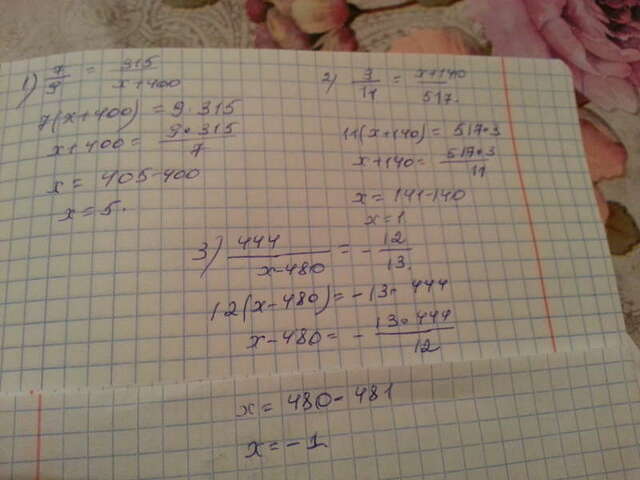 1) 7/9 = 315/x+400
7(x+400) = 9·315
x+400 = 9·315/7
x = 405-400
x = 5.
2) 3/11 = x+140/517.
11(x+140) = 517·3
x+140 = 517·3/11
x = 141-140
x = 1.
3) 444/x-480 = - 12/13.
12(x-480) = -13·444
x-480 = - 13·444/12
x = 480-481
x = -1.